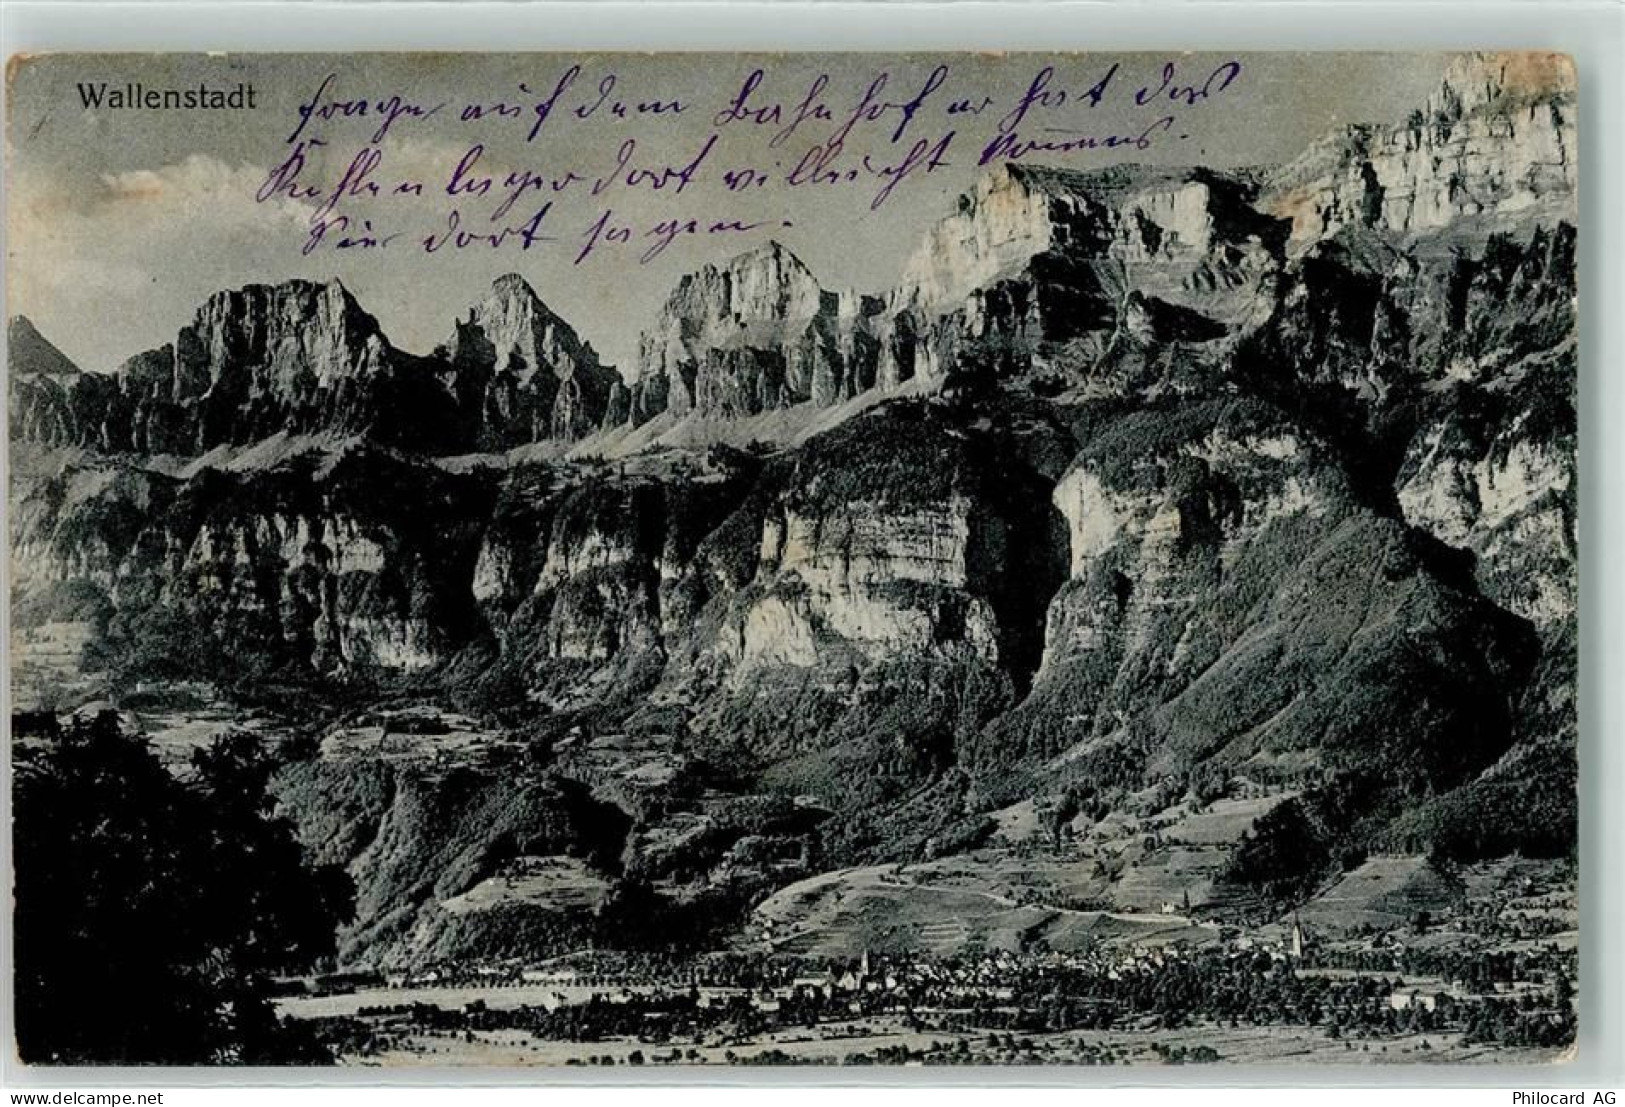 Wallenstadt
frage auf dem Bahnhof er hat das
Kohlenlager dort vielleicht
Sie dort sagen.
www.delcampe.net
Philocard AG